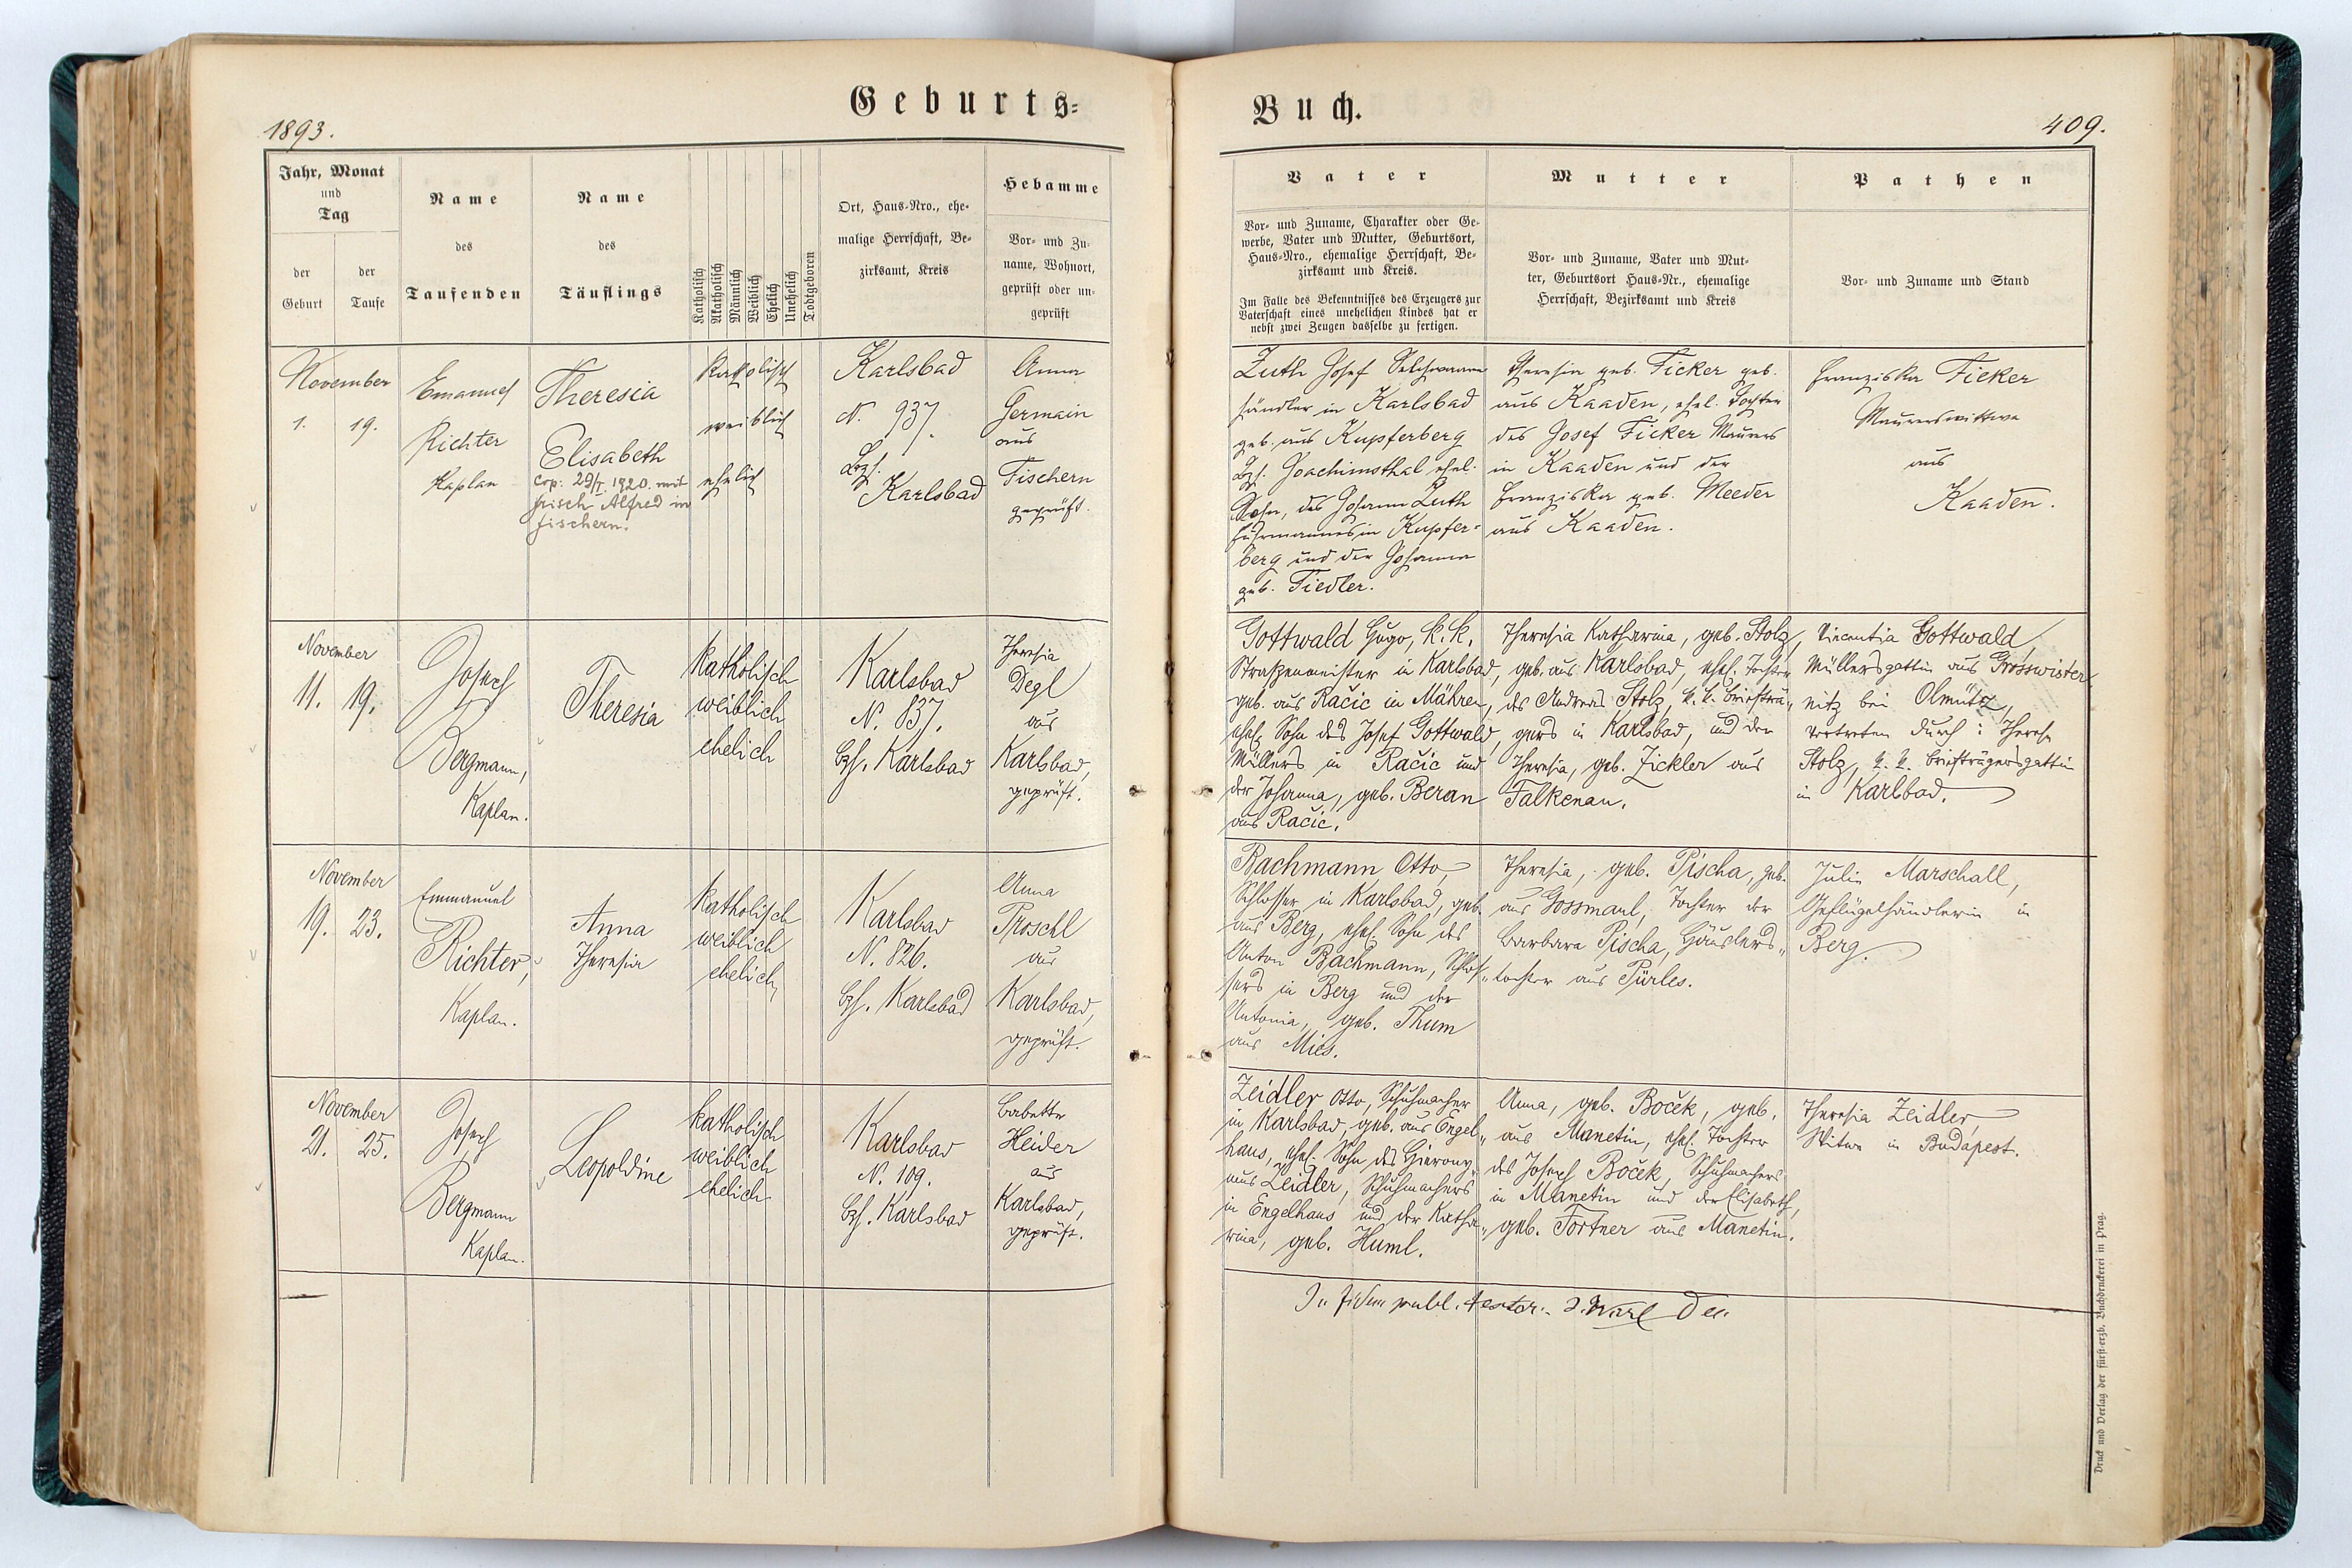 Geburts-
Buch.
1893.
409.
Jahr, Monat
und
Tag
der
Geburt
der
Taufe
Name
des
Taufenden
Name
des
Täuflings
Katholisch
Akatholisch
Männlich
Weiblich
Ehelich
Unehelich
Todtgeboren
Ort, Haus-Nro., ehe-
malige Herrschaft, Be-
zirksamt, Kreis
Hebamme
Vor- und Zu-
name, Wohnort,
geprüft oder un-
geprüft
Vater
Vor- und Zuname, Charakter oder Ge-
werbe, Vater und Mutter, Geburtsort,
Haus-Nro., ehemalige Herrschaft, Be-
zirksamt und Kreis.
Im Falle des Bekenntnisses des Erzeugers zur
Vaterschaft eines unehelichen Kindes hat er
nebst zwei Zeugen dasselbe zu fertigen.
Mutter
Vor- und Zuname, Vater und Mut-
ter, Geburtsort Haus-Nr., ehemalige
Herrschaft, Bezirksamt und Kreis
Pathen
Vor- und Zuname und Stand
November
1. 19.
Emanuel
Richter
Kaplan
Theresia
Elisabeth
cop: 29/I. 1920. mit
Frisch Alfred in
Fischern.
katholisch
weiblich
ehelich
Karlsbad
N. 937.
Bzh.
Karlsbad
Anna
Germain
aus
Fischern
geprüft.
Luth Josef
händler in Karlsbad
geb. aus Kupferberg
Bzh. Joachimsthal ehel.
Sohn, des Johann Luth
Fuhrmannes in Kupfer-
berg und der Johanna
geb. Fiedler.
Theresia geb. Ficker geb.
aus Kaaden, ehel. Tochter
des Josef Ficker Maurers
in Kaaden und der
Franziska geb. Meeder
aus Kaaden.
Franziska Ficker
Maurerswittwe
aus
Kaaden.
November
11. 19.
Josef
Bergmann,
Kaplan.
Theresia
katholisch
weiblich
ehelich
Karlsbad
N. 837.
Bzh. Karlsbad
Theresia
Degl
aus
Karlsbad,
geprüft.
Gottwald Hugo, k. k.
Straßenmeister in Karlsbad,
geb. aus Račic in Mähren,
ehel. Sohn des Josef Gottwald,
Müllers in Račic und
der Johanna, geb. Beran
aus Račic.
Theresia Katharina, geb. Stolz,
geb. aus Karlsbad, ehel. Tochter
des Andreas Stolz, k. k. Briefträ-
gers in Karlsbad, und der
Theresia, geb. Zickler aus
Falkenau.
Vincentia Gottwald,
Müllersgattin aus Grosswister-
nitz bei Olmütz,
vertreten durch: Therese
Stolz, k. k. Briefträgersgattin
in Karlbad.
November
19. 23.
Emmanuel
Richter,
Kaplan.
Anna
Theresia
katholisch
weiblich
ehelich
Karlsbad
N. 826.
Bzh. Karlsbad
Anna
Proschl
aus
Karlsbad,
geprüft.
Bachmann Otto,
Schlosser in Karlsbad, geb.
aus Berg, ehel. Sohn des
Anton Bachmann, Schlos-
sers in Berg und der
Antonia, geb. Thum
aus Mies.
Theresia, geb. Pischa, geb.
aus Gossmaul, Tochter der
Barbara Pischa, Häuslers-
tochter aus Pürles.
Julie Marschall,
Geflügelhändlerin in
Berg.
November
21. 25.
Josef
Bergmann
Kaplan.
Leopoldine
katholisch
weiblich
ehelich
Karlsbad
N. 109.
Bzh. Karlsbad
Babette
Heider
aus
Karlsbad,
geprüft.
Zeidler Otto, Schuhmacher
in Karlsbad, geb. aus Engel-
haus, ehel. Sohn des Hierony-
mus Zeidler, Schuhmachers
in Engelhaus und der Katha-
rina, geb. Huml.
Anna, geb. Boček, geb.
aus Manetin, ehel. Tochter
des Josef Boček, Schuhmachers
in Manetin und der Elisabeth,
geb. Fortner aus Manetin.
Theresia Zeidler,
Witwe in Budapest.
In fidem publ. testor:
Druck und Verlag der fürst-erzb. Buchdruckerei in Prag.